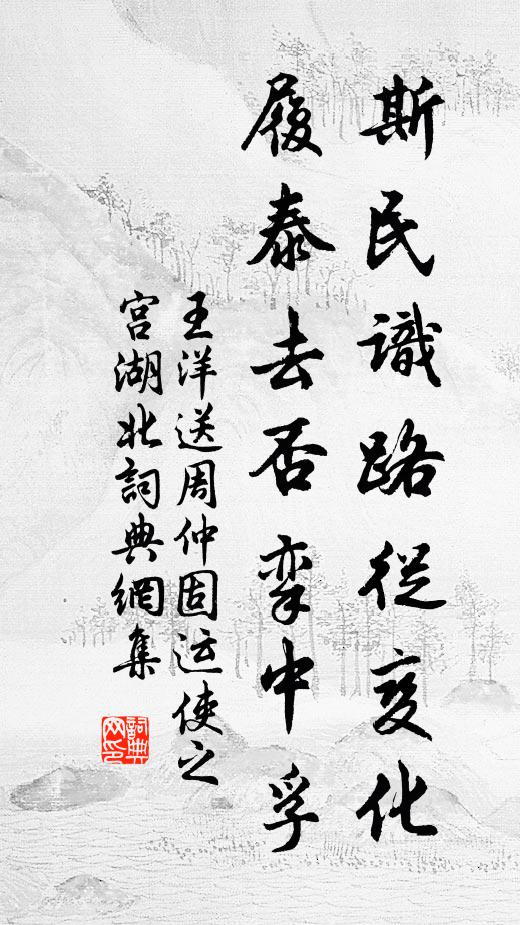 斯民識路從变化
履泰去否孪中孚
王洋送周仲固运使之
宫湖北詞典網集
詞典網印